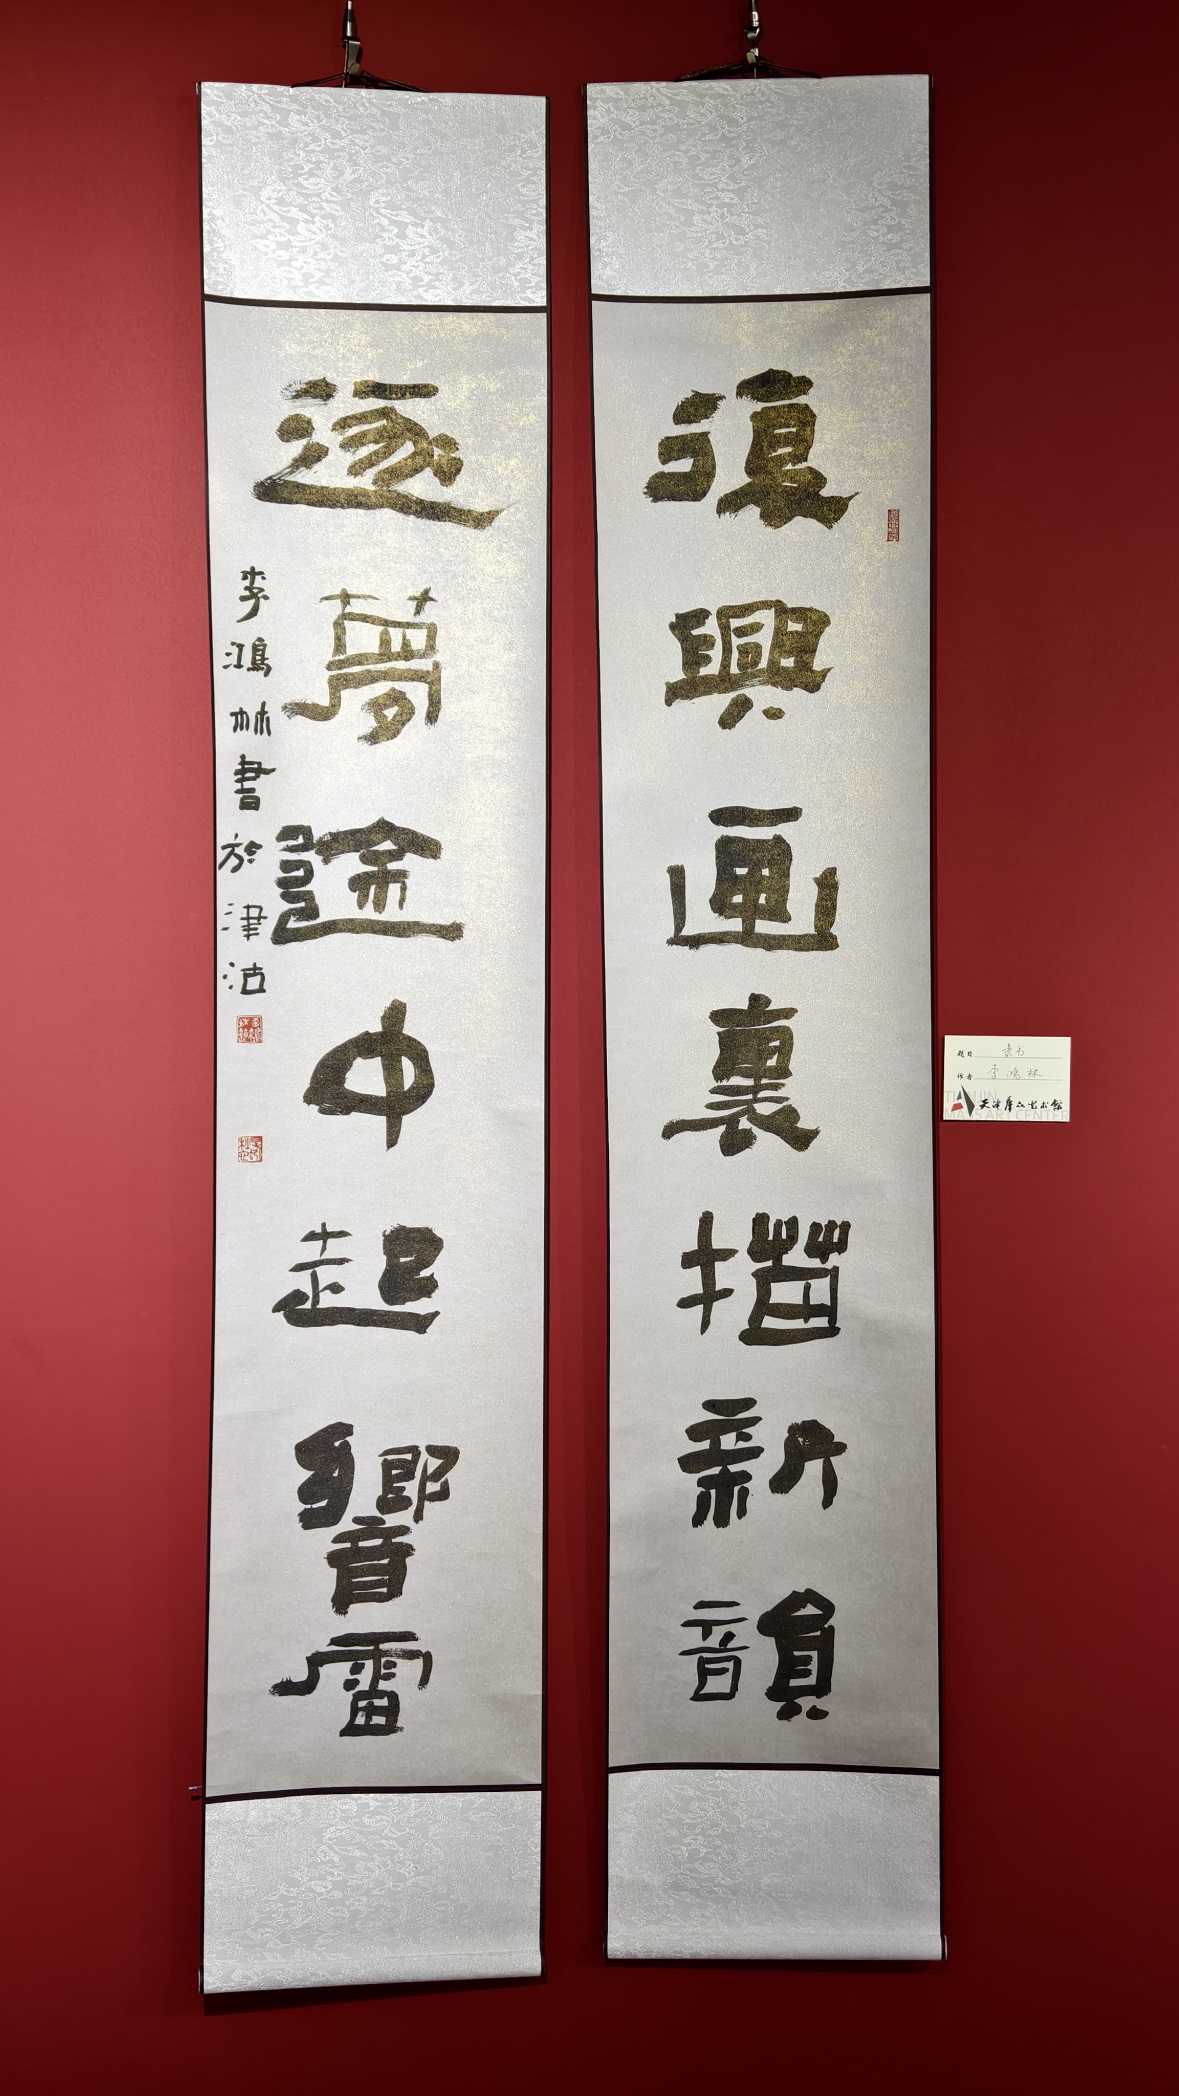 復興画裏描新韻
逐夢途中起響雷
李鴻林書於津沽
题目 隶书
作者 李鸿林
天津群众艺术馆
TIANJIN
MASS ART CENTER